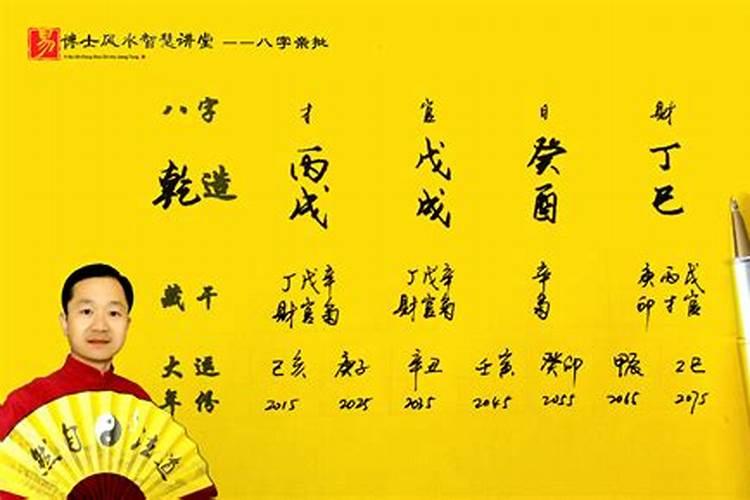 易 博士风水智慧讲堂 ——八字亲批
八字 才 官 日 财
乾造 丙戌 戊戌 癸酉 丁巳
藏干 丁戊辛 丁戊辛 辛 庚丙戊
财官 财官 印才官
大运 己亥 庚子 辛丑 壬寅 癸卯 甲辰 乙巳
年 2015 2025 2035 2045 2055 2065 2075
然自 法道